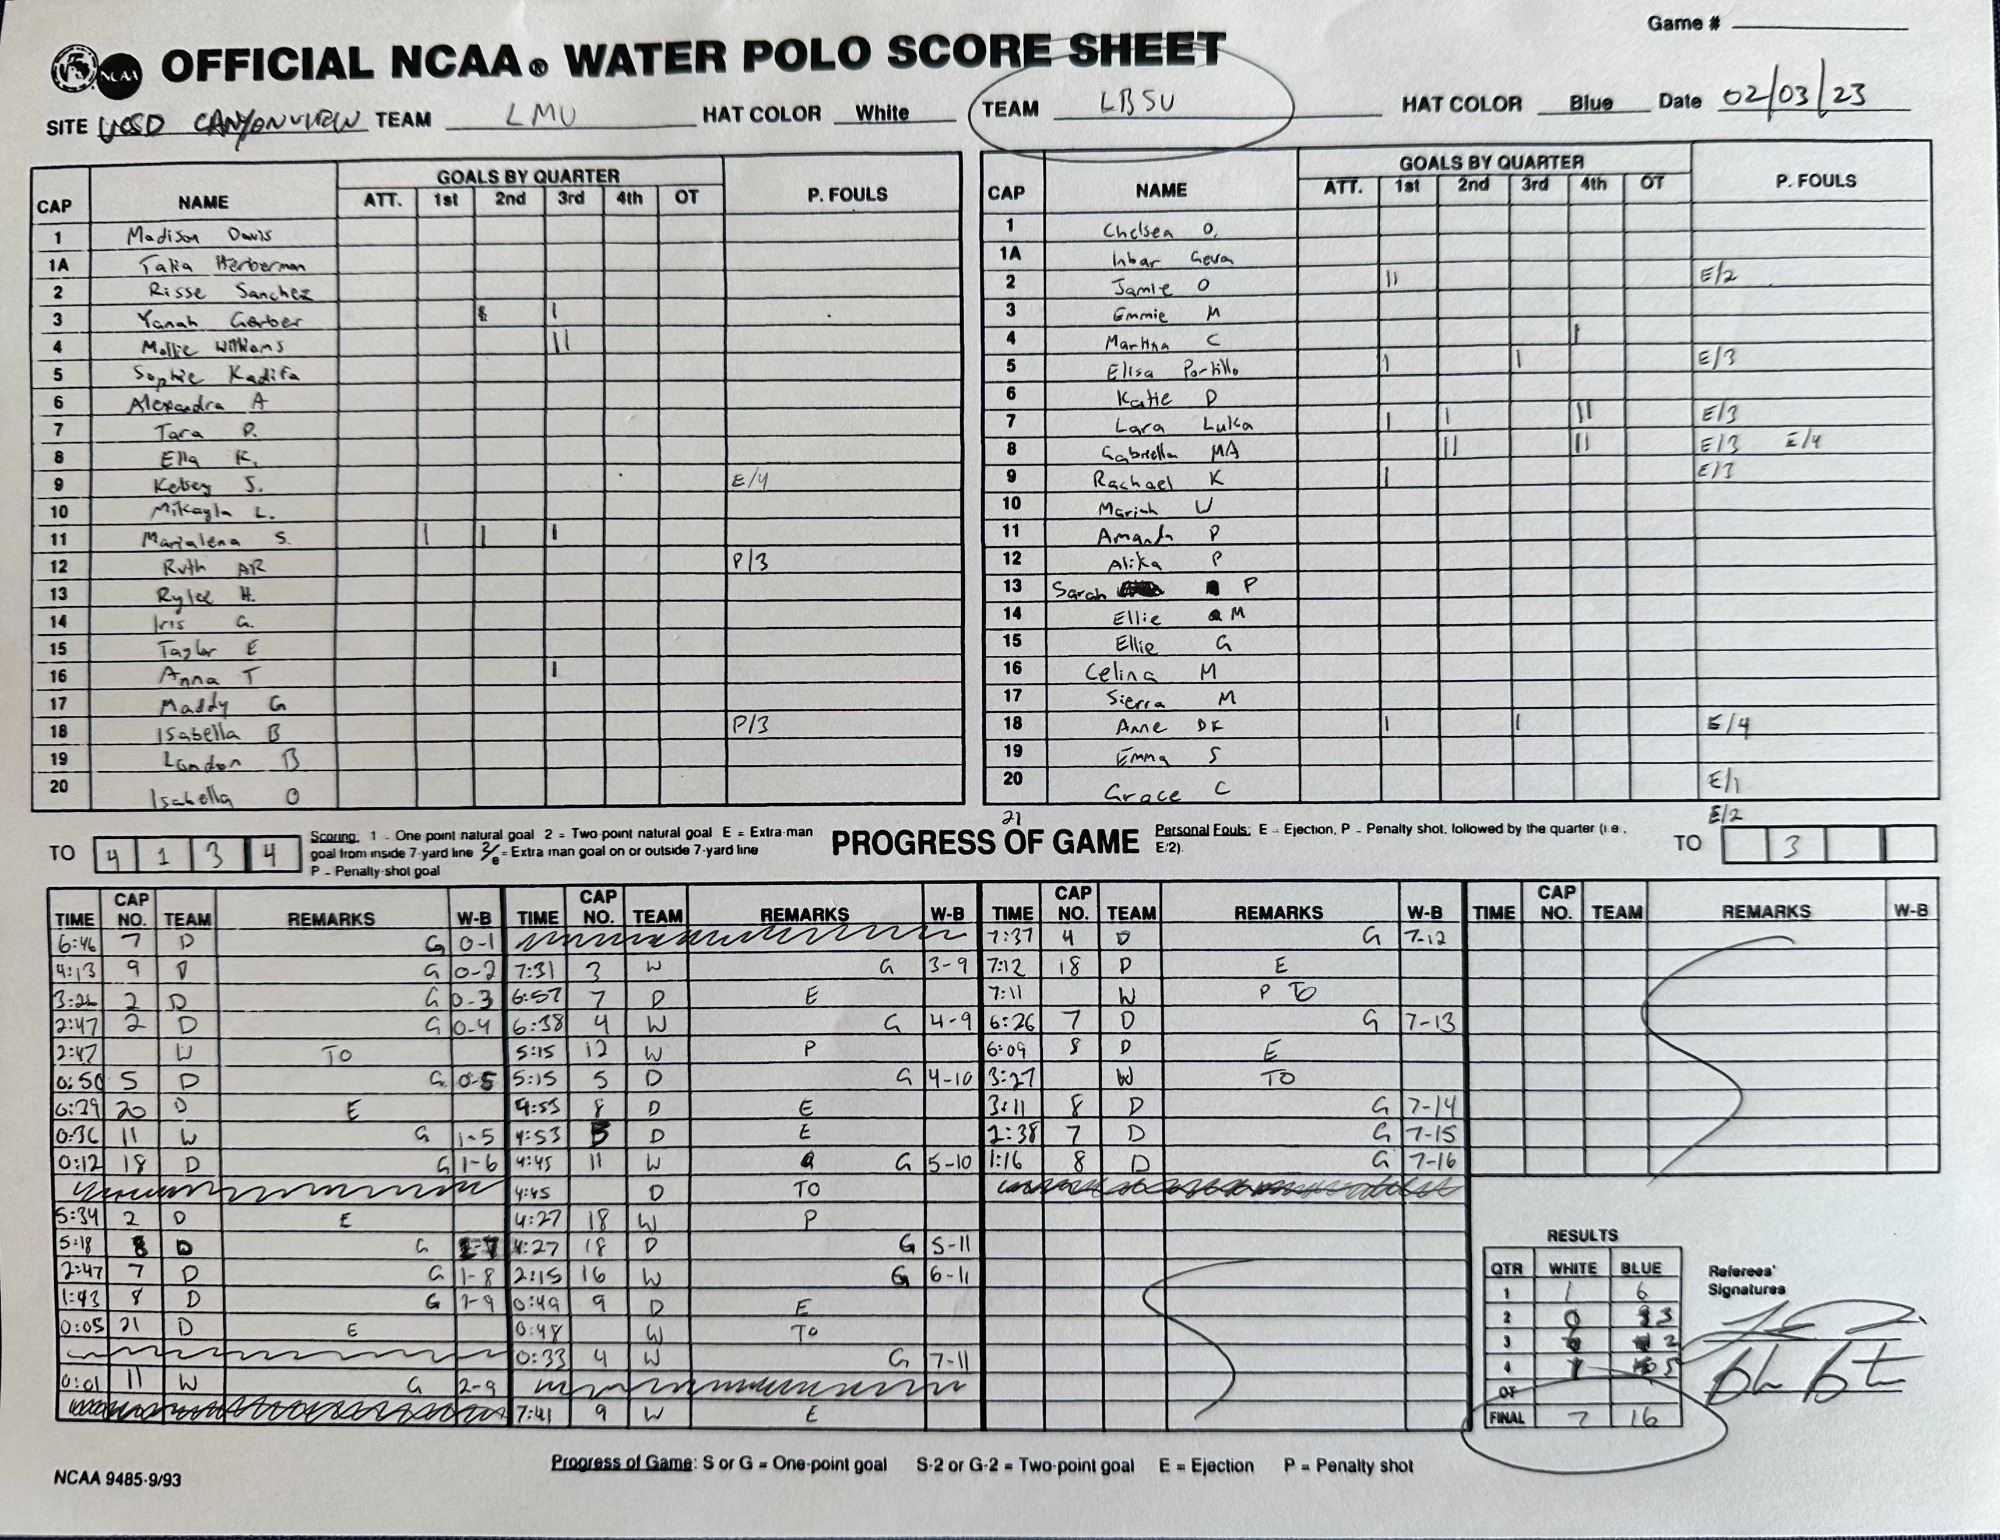 Game #
NCAA OFFICIAL NCAA® WATER POLO SCORE SHEET
SITE UCSD CANYONVIEW TEAM LMU HAT COLOR White TEAM LBSU HAT COLOR Blue Date 02/03/23
CAP NAME GOALS BY QUARTER P. FOULS
ATT. 1st 2nd 3rd 4th OT
1 Madison Davis
1A Talia Herberman
2 Risse Sanchez
3 Yanah Gerber |
4 Mollie Williams ||
5 Sophie Kadifa
6 Alexandra A
7 Tara P.
8 Ella K.
9 Kelsey S. E/4
10 Mikayla L.
11 Marialena S. | | |
12 Ruth AR P/3
13 Rylee H.
14 Iris G.
15 Taylor E
16 Anna T |
17 Maddy G
18 Isabella B P/3
19 London B
20 Isabella O
CAP NAME GOALS BY QUARTER P. FOULS
ATT. 1st 2nd 3rd 4th OT
1 Chelsea O.
1A Inbar Geva
2 Jamie O || E/2
3 Emmie M
4 Martina C |
5 Elisa Portillo | | E/3
6 Katie D
7 Lara Luka | | || E/3
8 Gabriella MA || || E/3 E/4
9 Rachael K | E/3
10 Mariah W
11 Amanda P
12 Alika P
13 Sarah P
14 Ellie M
15 Ellie G
16 Celina M
17 Sierra M
18 Anne DK | | E/4
19 Emma S
20 Grace C E/1
21 E/2
TO 4 1 3 4
Scoring: 1 - One point natural goal 2 = Two-point natural goal E = Extra-man
goal from inside 7-yard line 2/e = Extra man goal on or outside 7-yard line
P - Penalty-shot goal
PROGRESS OF GAME
Personal Fouls: E - Ejection, P - Penalty shot, followed by the quarter (i.e.
E/2).
TO 3
TIME CAP NO. TEAM REMARKS W-B
6:46 7 D G 0-1
4:13 9 D G 0-2
3:26 2 D G 0-3
2:47 2 D G 0-4
2:47 W TO
0:50 5 D G 0-5
0:39 20 D E
0:36 11 W G 1-5
0:12 18 D G 1-6
5:34 2 D E
5:18 8 D G 1-7
2:47 7 D G 1-8
1:43 8 D G 1-9
0:05 21 D E
0:01 11 W G 2-9
TIME CAP NO. TEAM REMARKS W-B
7:31 3 W G 3-9
6:57 7 D E
6:38 4 W G 4-9
5:15 12 W P
5:15 5 D G 4-10
4:53 8 D E
4:53 5 D E
4:45 11 W G 5-10
4:45 D TO
4:27 18 W P
4:27 18 D G 5-11
2:15 16 W G 6-11
0:49 9 D E
0:48 W TO
0:33 4 W G 7-11
7:41 9 W E
TIME CAP NO. TEAM REMARKS W-B
7:37 4 D G 7-12
7:12 18 D E
7:11 W P TO
6:26 7 D G 7-13
6:09 8 D E
3:27 W TO
3:11 8 D G 7-14
2:38 7 D G 7-15
1:16 8 D G 7-16
TIME CAP NO. TEAM REMARKS W-B
RESULTS
QTR WHITE BLUE
1 1 6
2 3
3 2
4 5
OT
FINAL 7 16
Referees'
Signatures
Progress of Game: S or G = One-point goal S-2 or G-2 = Two-point goal E = Ejection P = Penalty shot
NCAA 9485-9/93